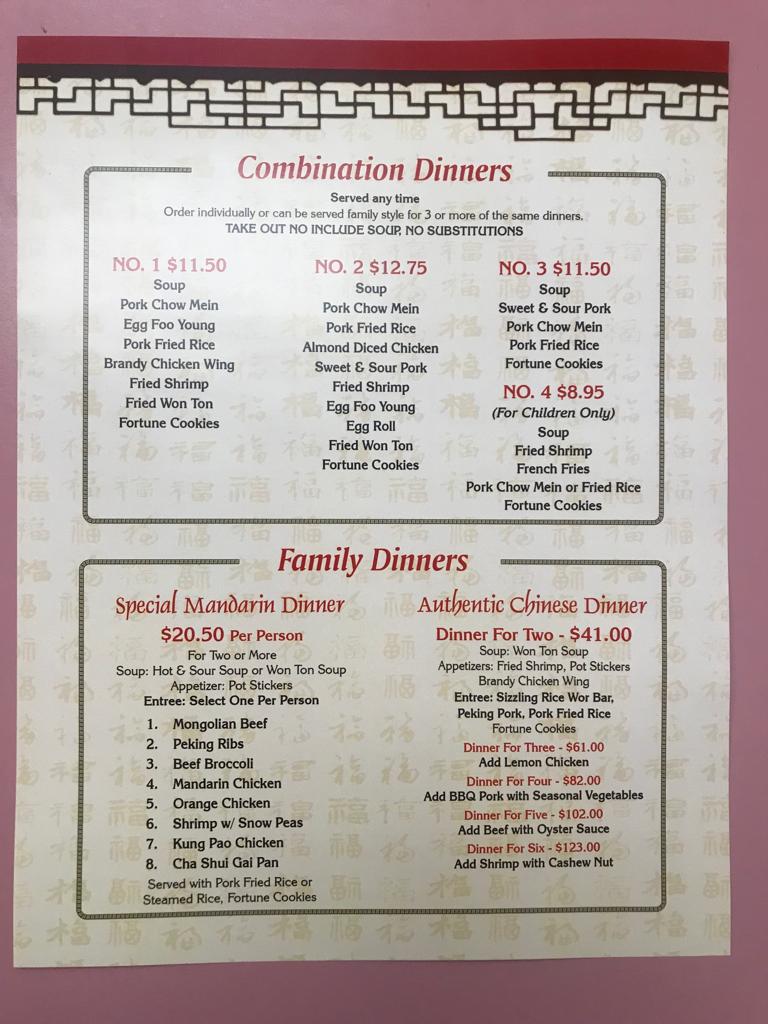 Combination Dinners
Served any time
Order individually or can be served family style for 3 or more of the same dinners.
TAKE OUT NO INCLUDE SOUP, NO SUBSTITUTIONS
NO. 1 $11.50
Soup
Pork Chow Mein
Egg Foo Young
Pork Fried Rice
Brandy Chicken Wing
Fried Shrimp
Fried Won Ton
Fortune Cookies
NO. 2 $12.75
Soup
Pork Chow Mein
Pork Fried Rice
Almond Diced Chicken
Sweet & Sour Pork
Fried Shrimp
Egg Foo Young
Egg Roll
Fried Won Ton
Fortune Cookies
NO. 3 $11.50
Soup
Sweet & Sour Pork
Pork Chow Mein
Pork Fried Rice
Fortune Cookies
NO. 4 $8.95
(For Children Only)
Soup
Fried Shrimp
French Fries
Pork Chow Mein or Fried Rice
Fortune Cookies
Family Dinners
Special Mandarin Dinner
$20.50 Per Person
For Two or More
Soup: Hot & Sour Soup or Won Ton Soup
Appetizer: Pot Stickers
Entree: Select One Per Person
1. Mongolian Beef
2. Peking Ribs
3. Beef Broccoli
4. Mandarin Chicken
5. Orange Chicken
6. Shrimp w/ Snow Peas
7. Kung Pao Chicken
8. Cha Shui Gai Pan
Served with Pork Fried Rice or
Steamed Rice, Fortune Cookies
Authentic Chinese Dinner
Dinner For Two - $41.00
Soup: Won Ton Soup
Appetizers: Fried Shrimp, Pot Stickers
Brandy Chicken Wing
Entree: Sizzling Rice Wor Bar,
Peking Pork, Pork Fried Rice
Fortune Cookies
Dinner For Three - $61.00
Add Lemon Chicken
Dinner For Four - $82.00
Add BBQ Pork with Seasonal Vegetables
Dinner For Five - $102.00
Add Beef with Oyster Sauce
Dinner For Six - $123.00
Add Shrimp with Cashew Nut